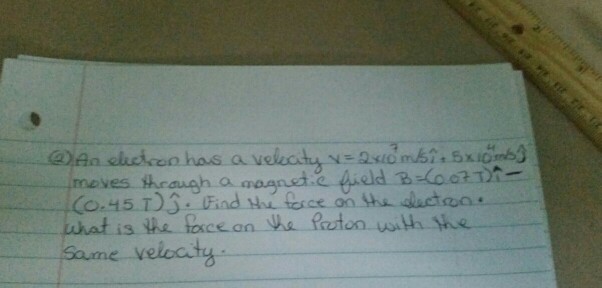 @) An electron has a velocity v = 2×10⁷ m/s î + 5×10⁴ m/s ĵ
moves through a magnetic field B = (0.07T) î −
(0.45 T) ĵ. Find the force on the electron.
what is the force on the Proton with the
same velocity.